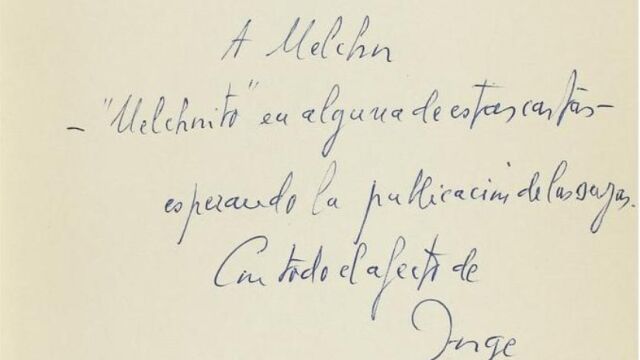 A Melchor
– "Melchorito" en alguna de estas cartas –
esperando la publicación de las suyas.
Con todo el afecto de
Jorge